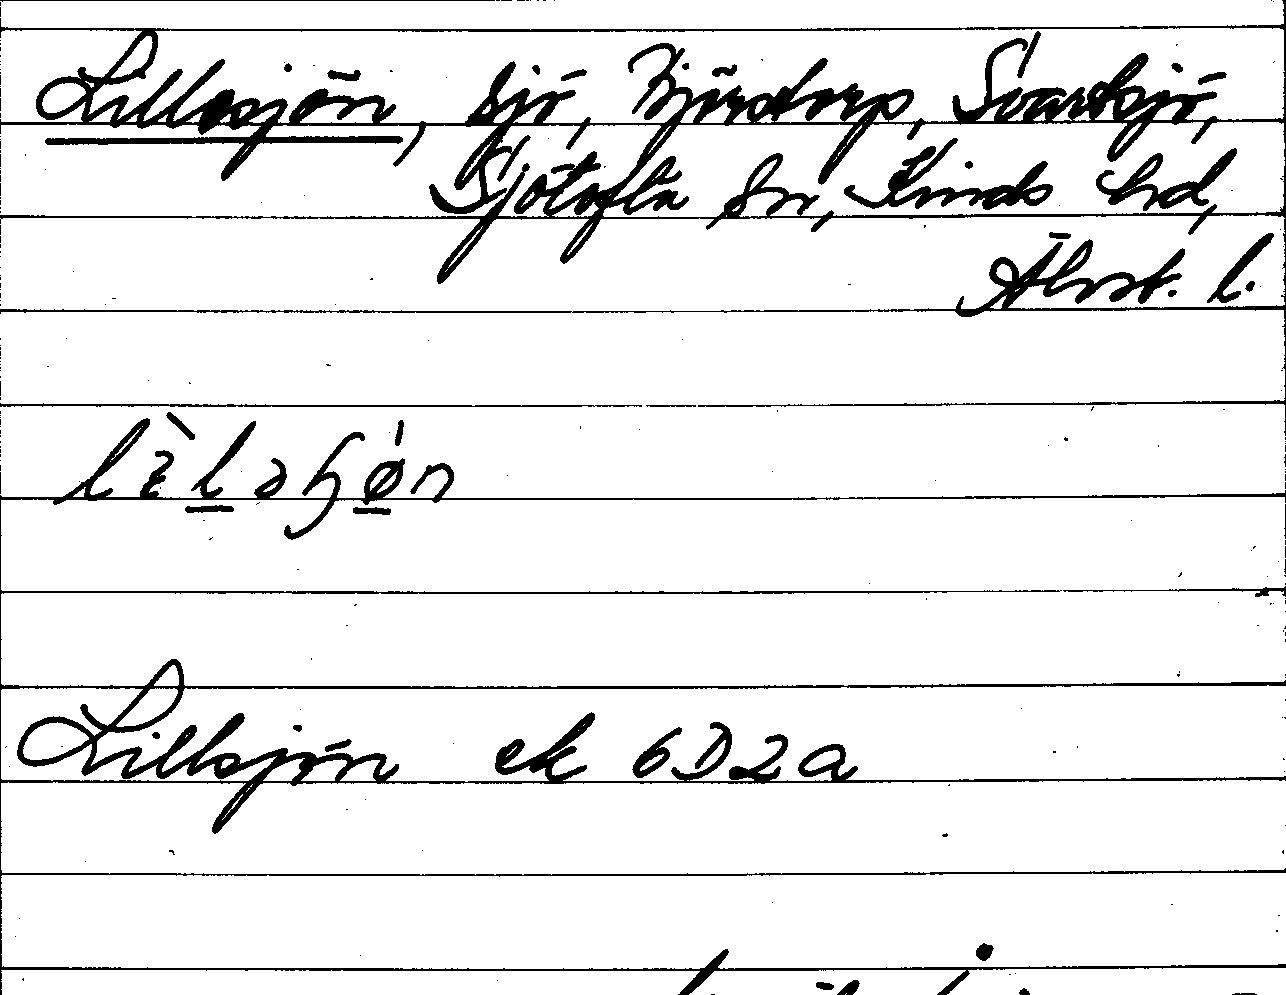 Lillesjön, sjö, Björstorp, Svartsjö,
Sjötofta sn, Kinds hd,
Älvsb. l.
Lillsjön ek 6D2a